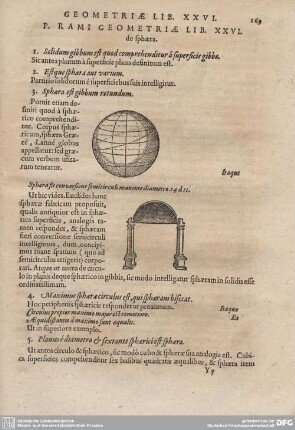 GEOMETRIÆ LIB. XXVI.
169
P. RAMI GEOMETRIÆ LIB. XXVI.
de sphæra.
1. Solidum gibbum est quod comprehenditur à superficie gibba.
Sic antea planum à superficie plana definitum est.
2. Estque sphæra aut varium.
Partitio solidorum è superficiebus suis intelligitur.
3. Sphæra est gibbum rotundum.
Potuit etiam de-
finiri quod à sphæ-
rico comprehendi-
tur. Corpus sphæ-
ricum, sphæra Græ-
cè, Latinè globus
appellatur: sed græ-
cum verbum usita-
tum teneatur.
Itaque
Sphæra fit conversione semicirculi manente diametro. 14 d 11.
Ut hic vides. Euclides hanc
sphæræ fabricam proposuit,
qualis antiquior est in sphæ-
rica superficie, analogia ta-
men respondet, & sphæram
fieri conversione semicirculi
intelligimus, dum concipi-
mus inane spatium (quo ad
semicirculus attigerit) corpo-
rari. Atque ut antea de circu-
lo in planis deque sphærico in gibbis, sic modo intelligatur sphæram in solidis esse
ordinatissimam.
4. Maximus sphæræ circulus est, qui sphæram bisecat.
Itaque
Hoc peripheriis sphæricis respondet ut proximum.
Circulus propior maximo major est remotiore.
Et
Æquidistantes à maximo sunt æquales.
Ut in superiore exemplo.
5. Planus è diametro & sextante sphærici est sphæra.
Ut antea circulo & sphærico, sic modo cubo & sphæræ sua analogia est. Cubi-
ca superficies comprehenditur sex basibus quadratis æqualibus, & sphæra item
Yy
DFG